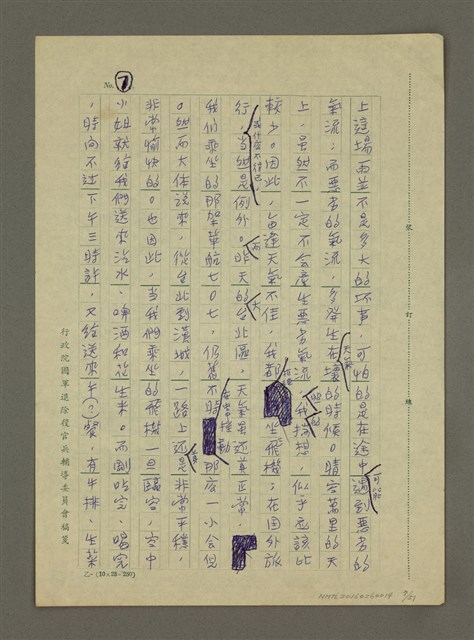 No. 7
上這場雨並不是多大的坏事，可怕的是在途中可能遇到惡劣的
氣流；而惡劣的氣流，多發生在天氣壞的時候。晴空萬里的天
上，虽然不一定不会產生惡劣氣流，我揣想，似乎应該比
較少。因此，每逢天氣不佳，我都 坐飛機；在国外旅
行，或什麼不得已，当然是例外。昨天的台北區，天氣虽还真正常，
我们乘坐的那架華航七〇七，仍舊不時在空中撞動那麼一小会但
。然而大体說來，從台北到漢城，一路上还是非常平穩，
非常愉快的。也因此，当我們乘坐的飛機一旦臨空，空中
小姐就給我們送來汽水、啤酒和花生米。而剛吃完、喝完
，時间不过下午三時許，又給送來午（？）餐，有牛排、生菜
行政院國軍退除役官兵輔導委員會稿箋
乙一(10×25=250)
裝 訂 線
7/21